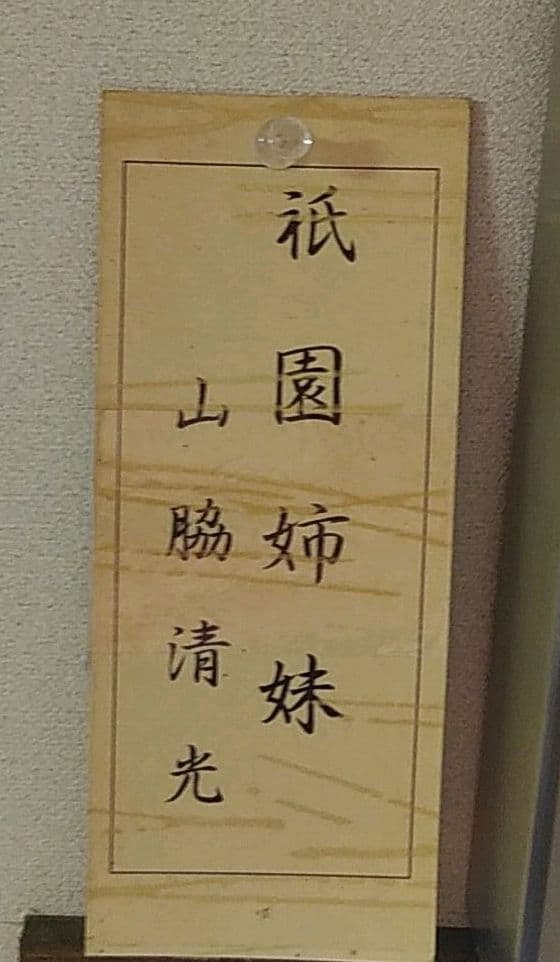 祇園姉妹
山脇清光